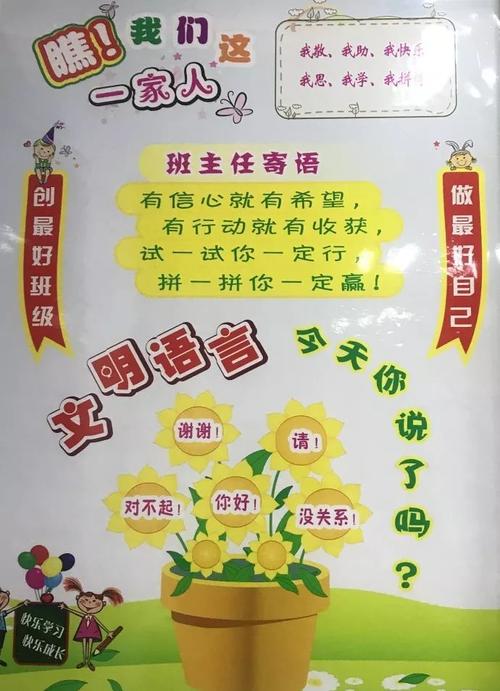 瞧！我们这
一家人
我敬、我助、我快乐
我思、我学、我拼
班主任寄语
有信心就有希望，
有行动就有收获，
试一试你一定行，
拼一拼你一定赢！
创最好班级
做最好自己
文明语言
今天你说了吗？
谢谢！
请！
对不起！
你好！
没关系！
快乐学习
快乐成长